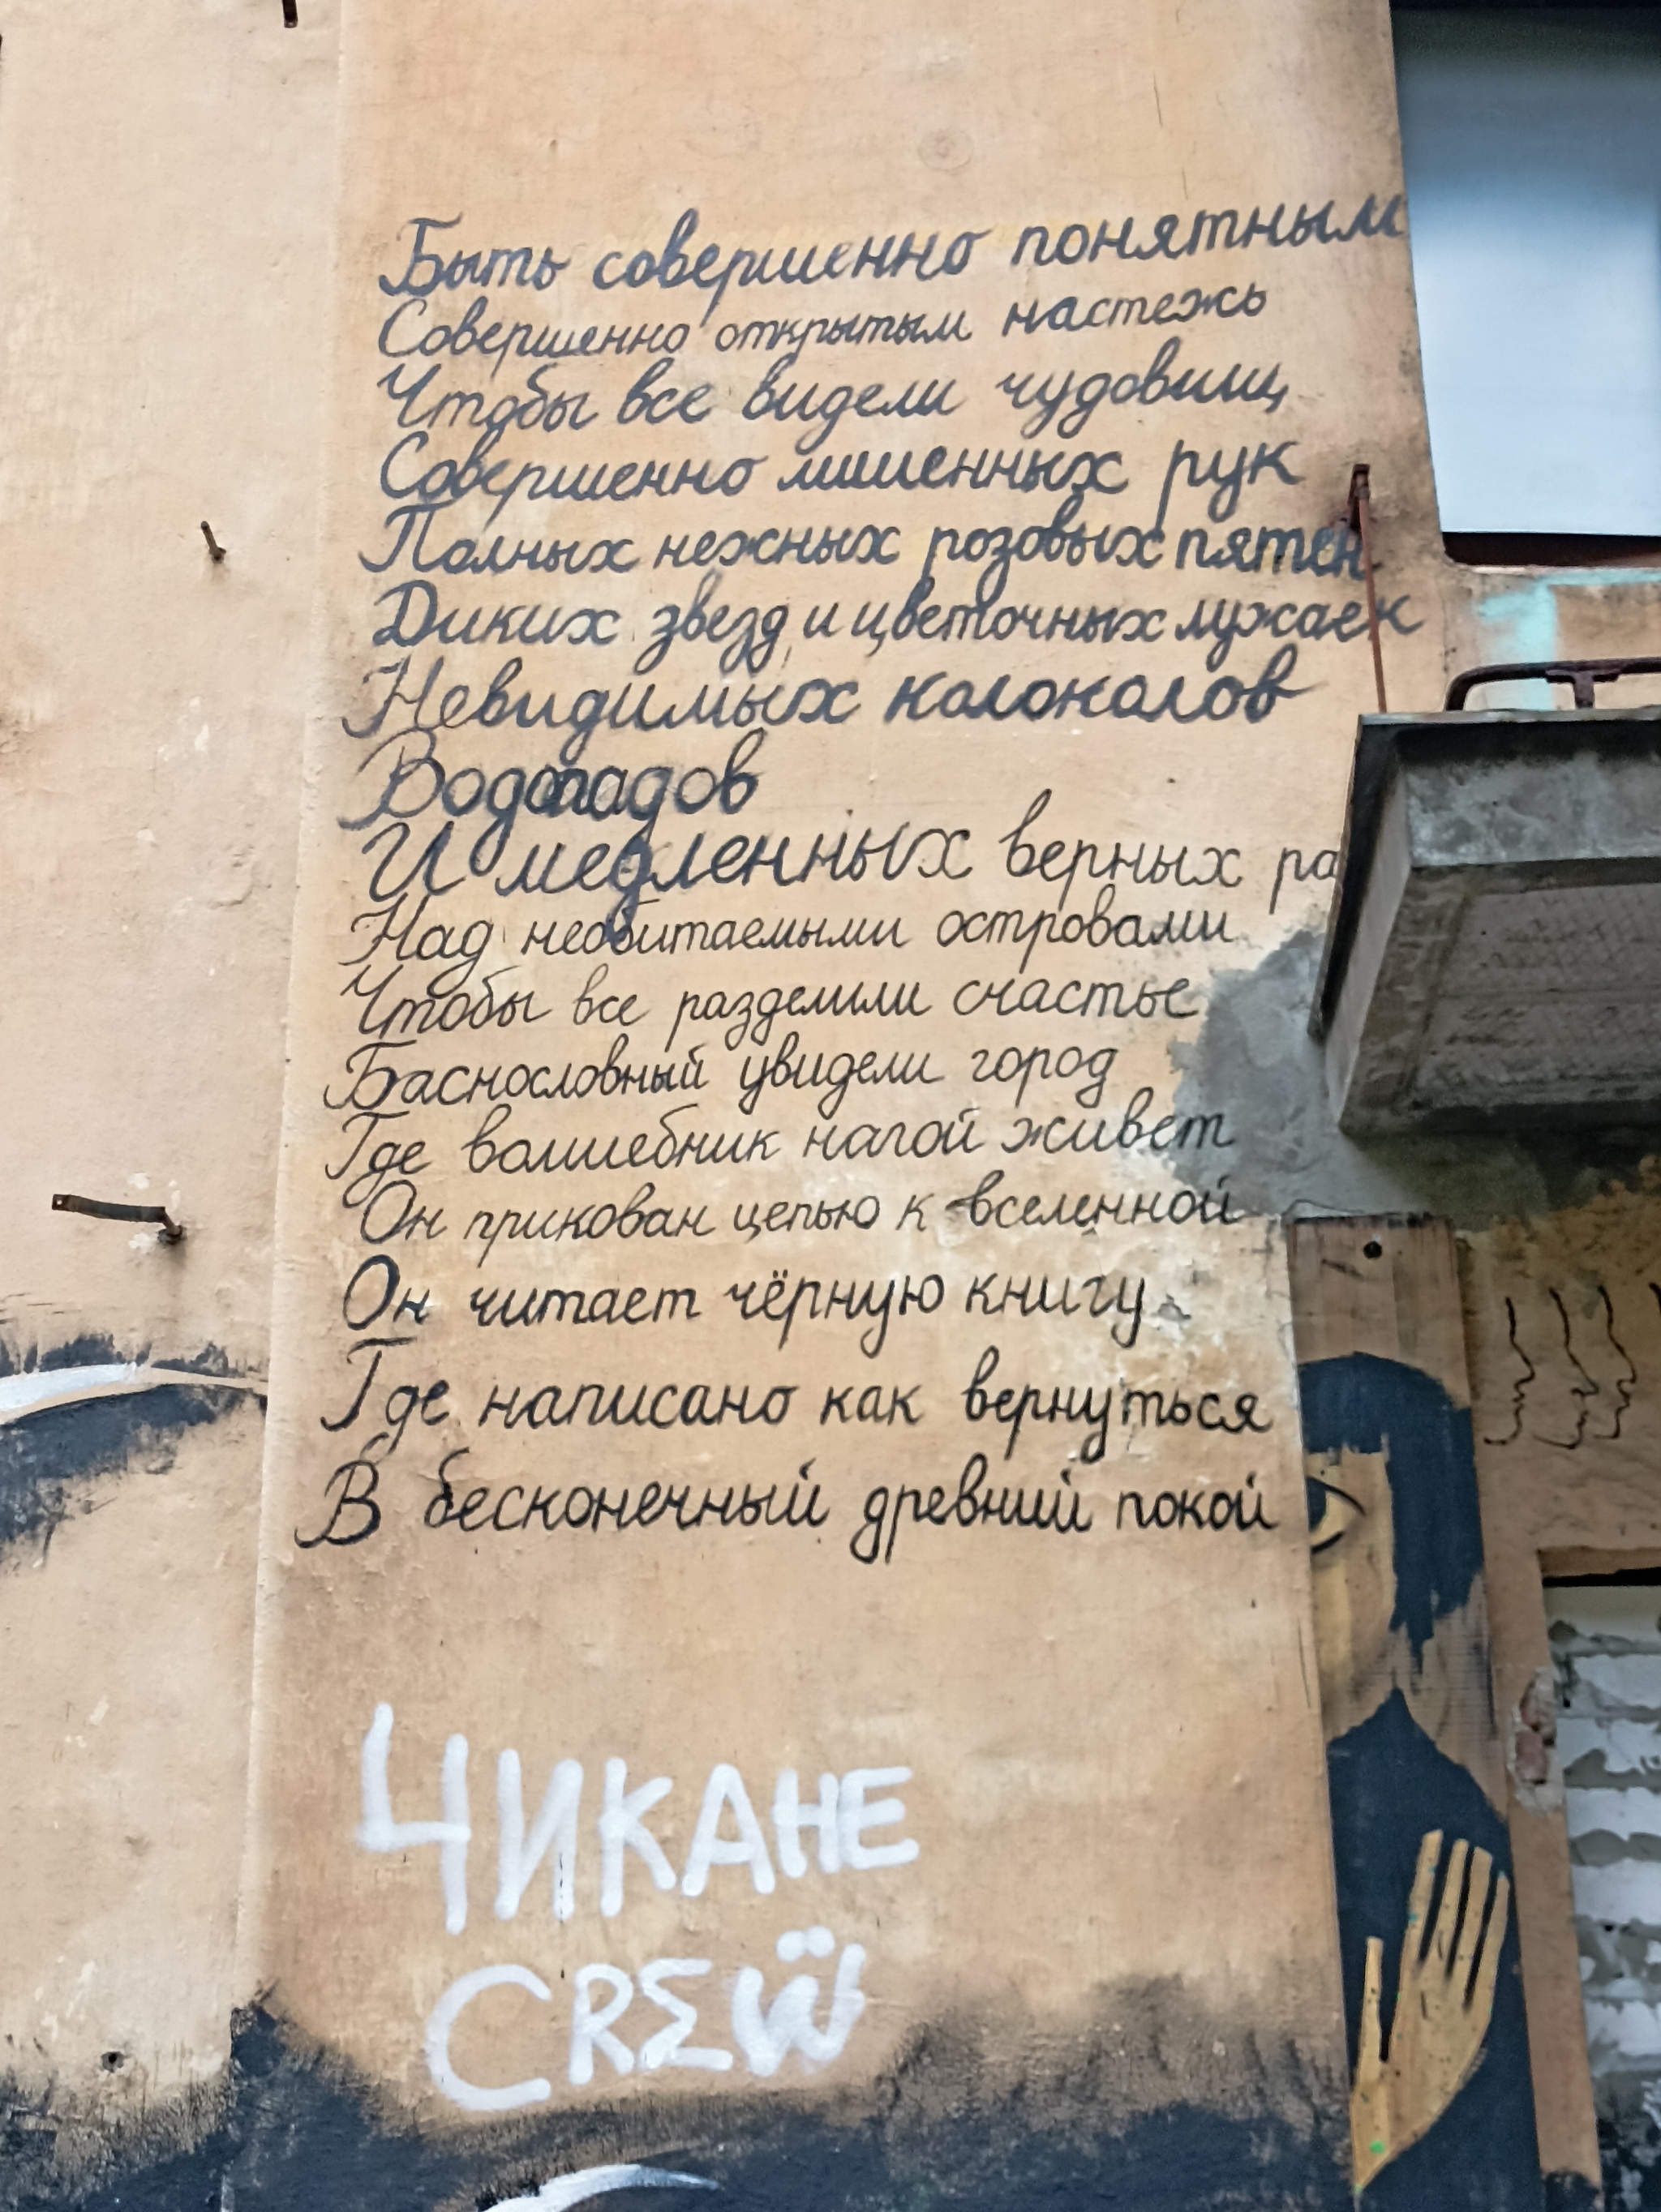 Быть совершенно понятным
Совершенно открытым настежь
Чтобы все видели чудовищ
Совершенно лишенных рук
Полных нежных розовых пятен
Диких звезд и цветочных лужаек
Невидимых колоколов
Водопадов
И медленных верных ра
Над необитаемыми островами
Чтобы все разделили счастье
Баснословный увидели город
Где волшебник нагой живет
Он прикован цепью к вселенной
Он читает чёрную книгу
Где написано как вернуться
В бесконечный древний покой
ЧИКАНЕ
CRΣẄ